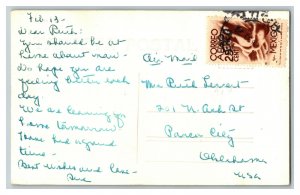 Feb. 13 -
Dear Ruth:
You should be at
home about now -
We hope you are
feeling better each
day
We are leaving for
home tomorrow
Have had a grand
time -
Best wishes and love -
Air Mail
Mrs Ruth
Ponca City
Oklahoma
USA
CORREO
AEREO
MEXICO